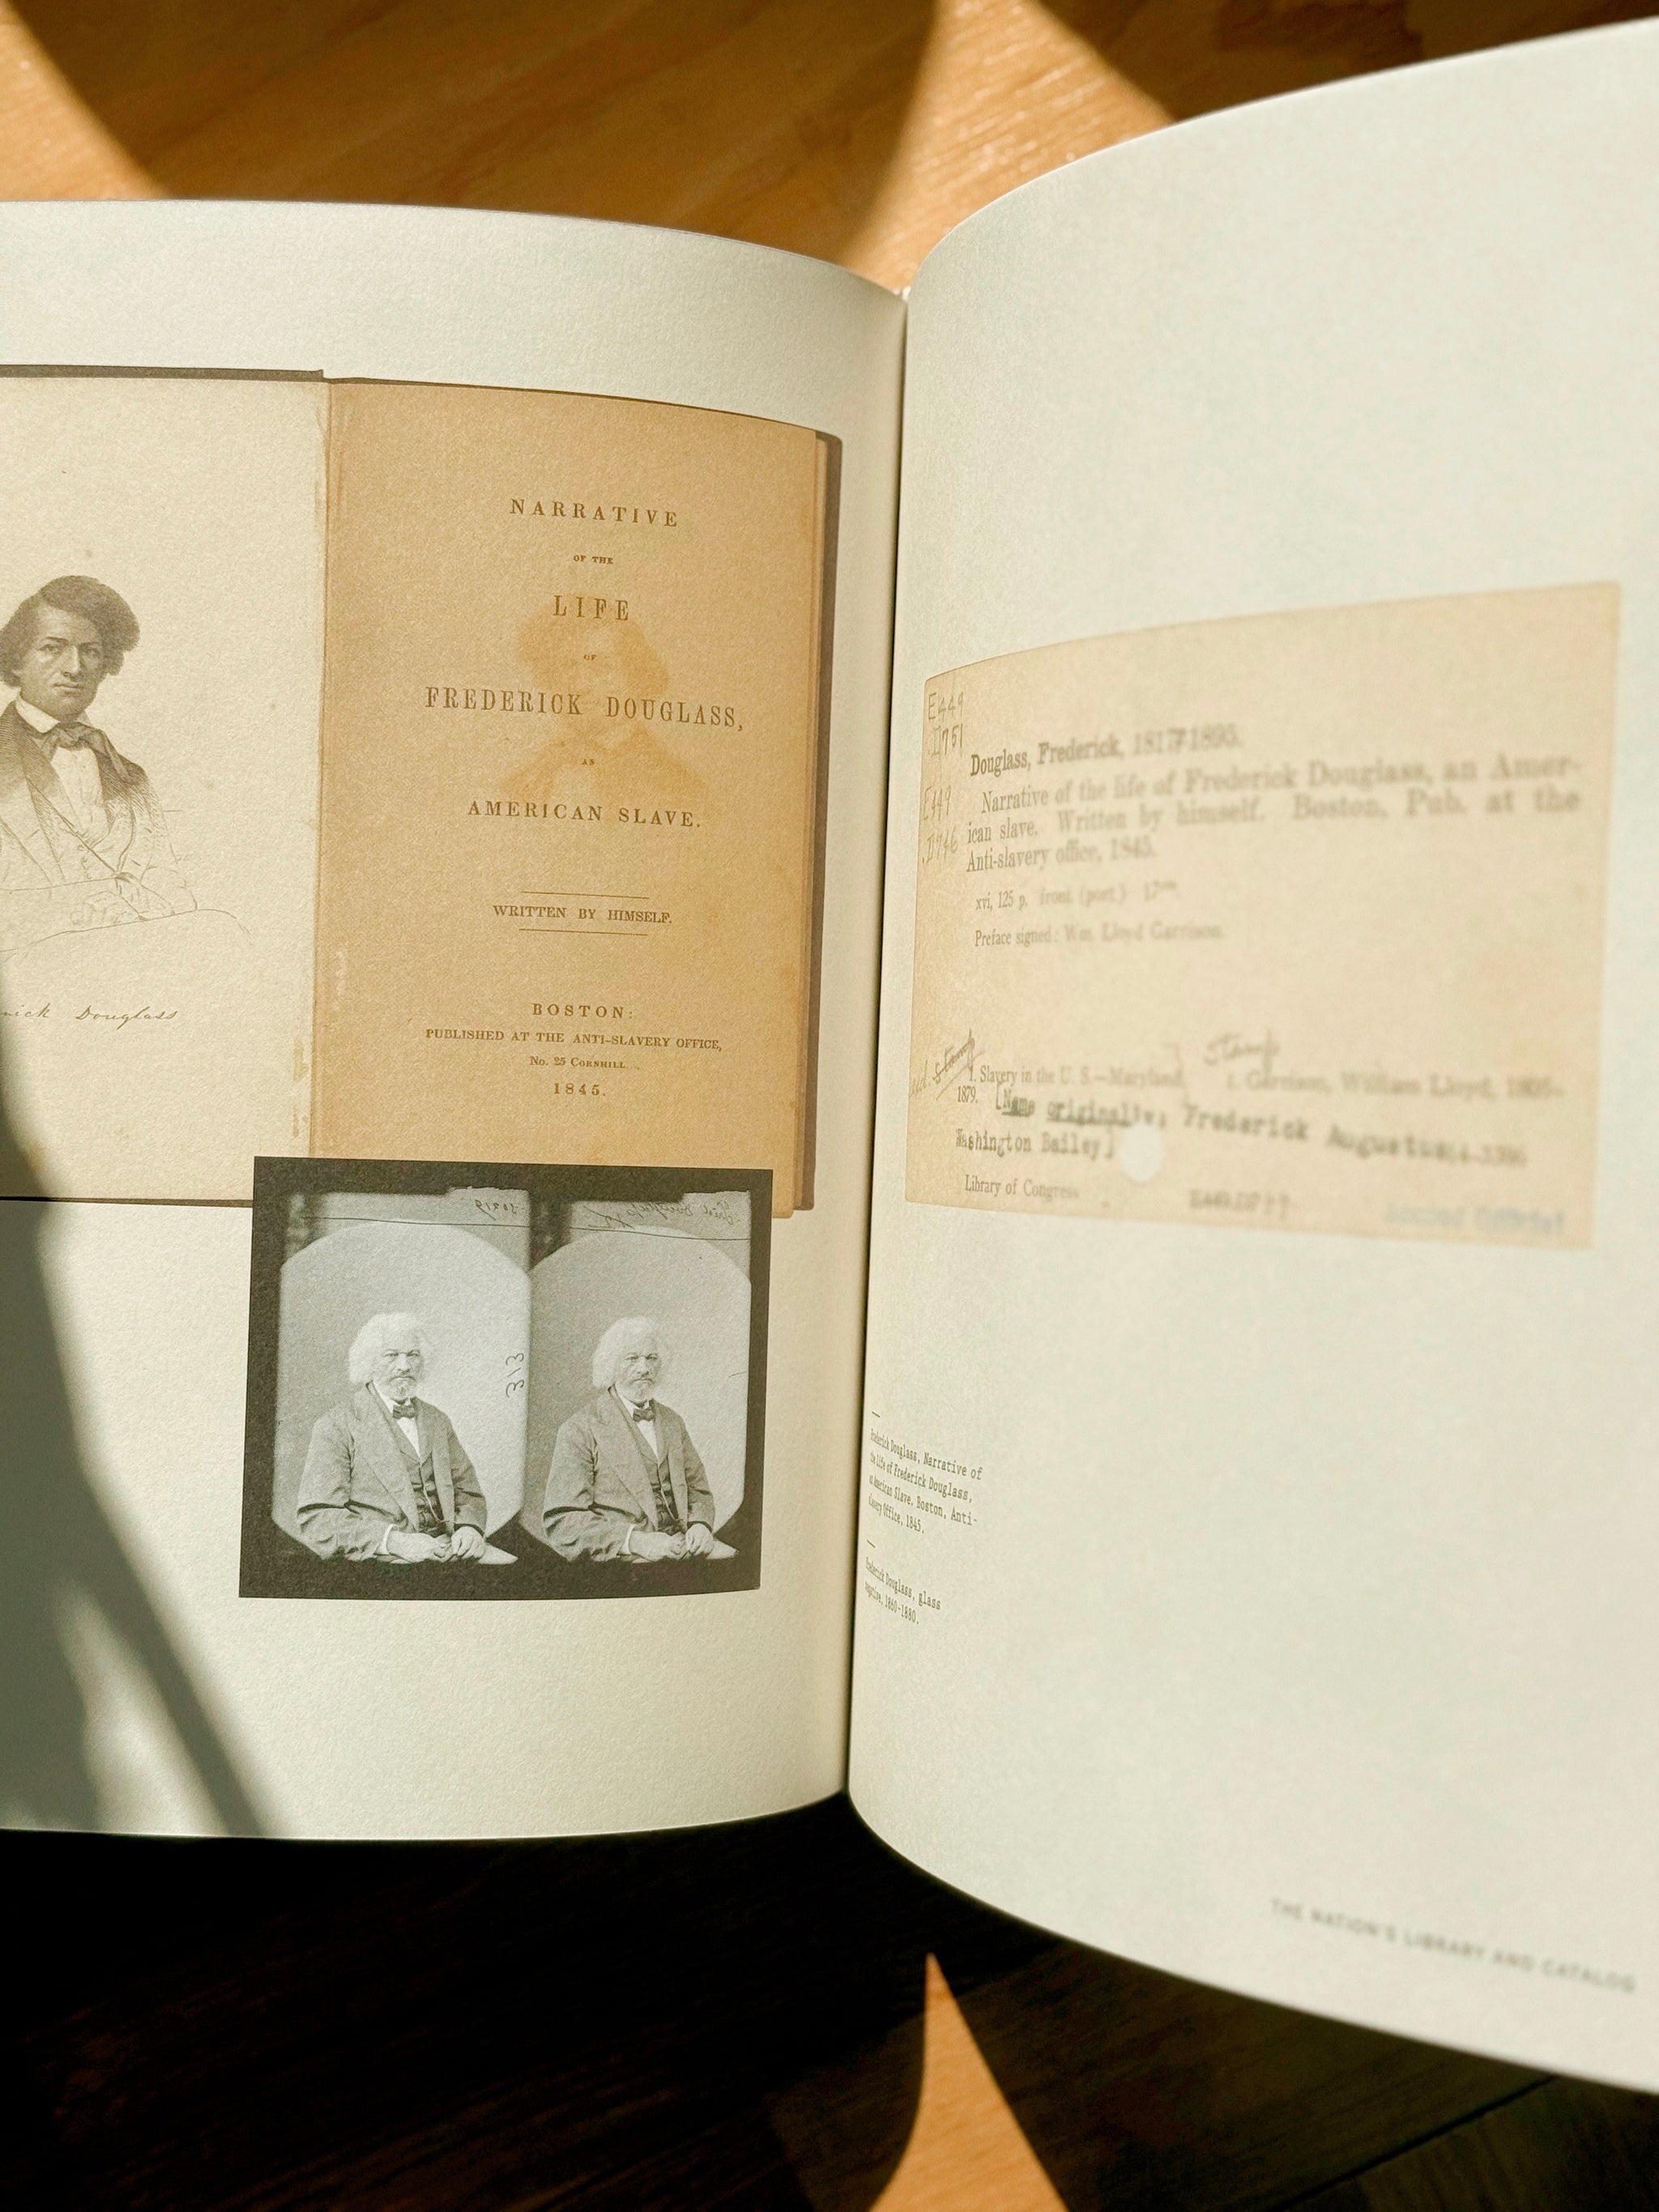 NARRATIVE
OF THE
LIFE
OF
FREDERICK DOUGLASS,
AN
AMERICAN SLAVE.
WRITTEN BY HIMSELF.
BOSTON:
PUBLISHED AT THE ANTI-SLAVERY OFFICE,
No. 25 CORNHILL.
1845.
rick Douglass
313
E449
.D751
E449
.D746
Douglass, Frederick, 1817-1895.
Narrative of the life of Frederick Douglass, an Amer-
ican slave. Written by himself. Boston, Pub. at the
Anti-slavery office, 1845.
xvi, 125 p. front. (port.) 17cm.
Preface signed: Wm. Lloyd Garrison.
Stamp
1. Slavery in the U. S.—Maryland. I. Garrison, William Lloyd, 1805-
1879. [Name originally: Frederick Augustus
Washington Bailey]
Library of Congress
Frederick Douglass, Narrative of
the Life of Frederick Douglass,
an American Slave. Boston, Anti-
Slavery Office, 1845.
Frederick Douglass, glass
negative, 1860-1880.
THE NATION'S LIBRARY AND CATALOG